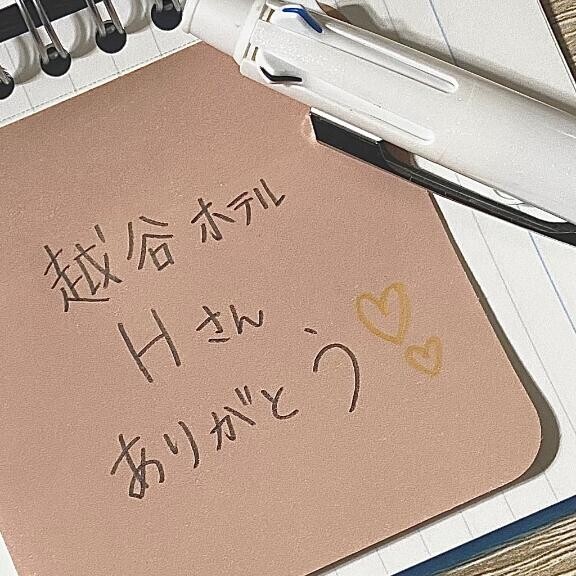 越谷ホテル
Hさん
ありがとう